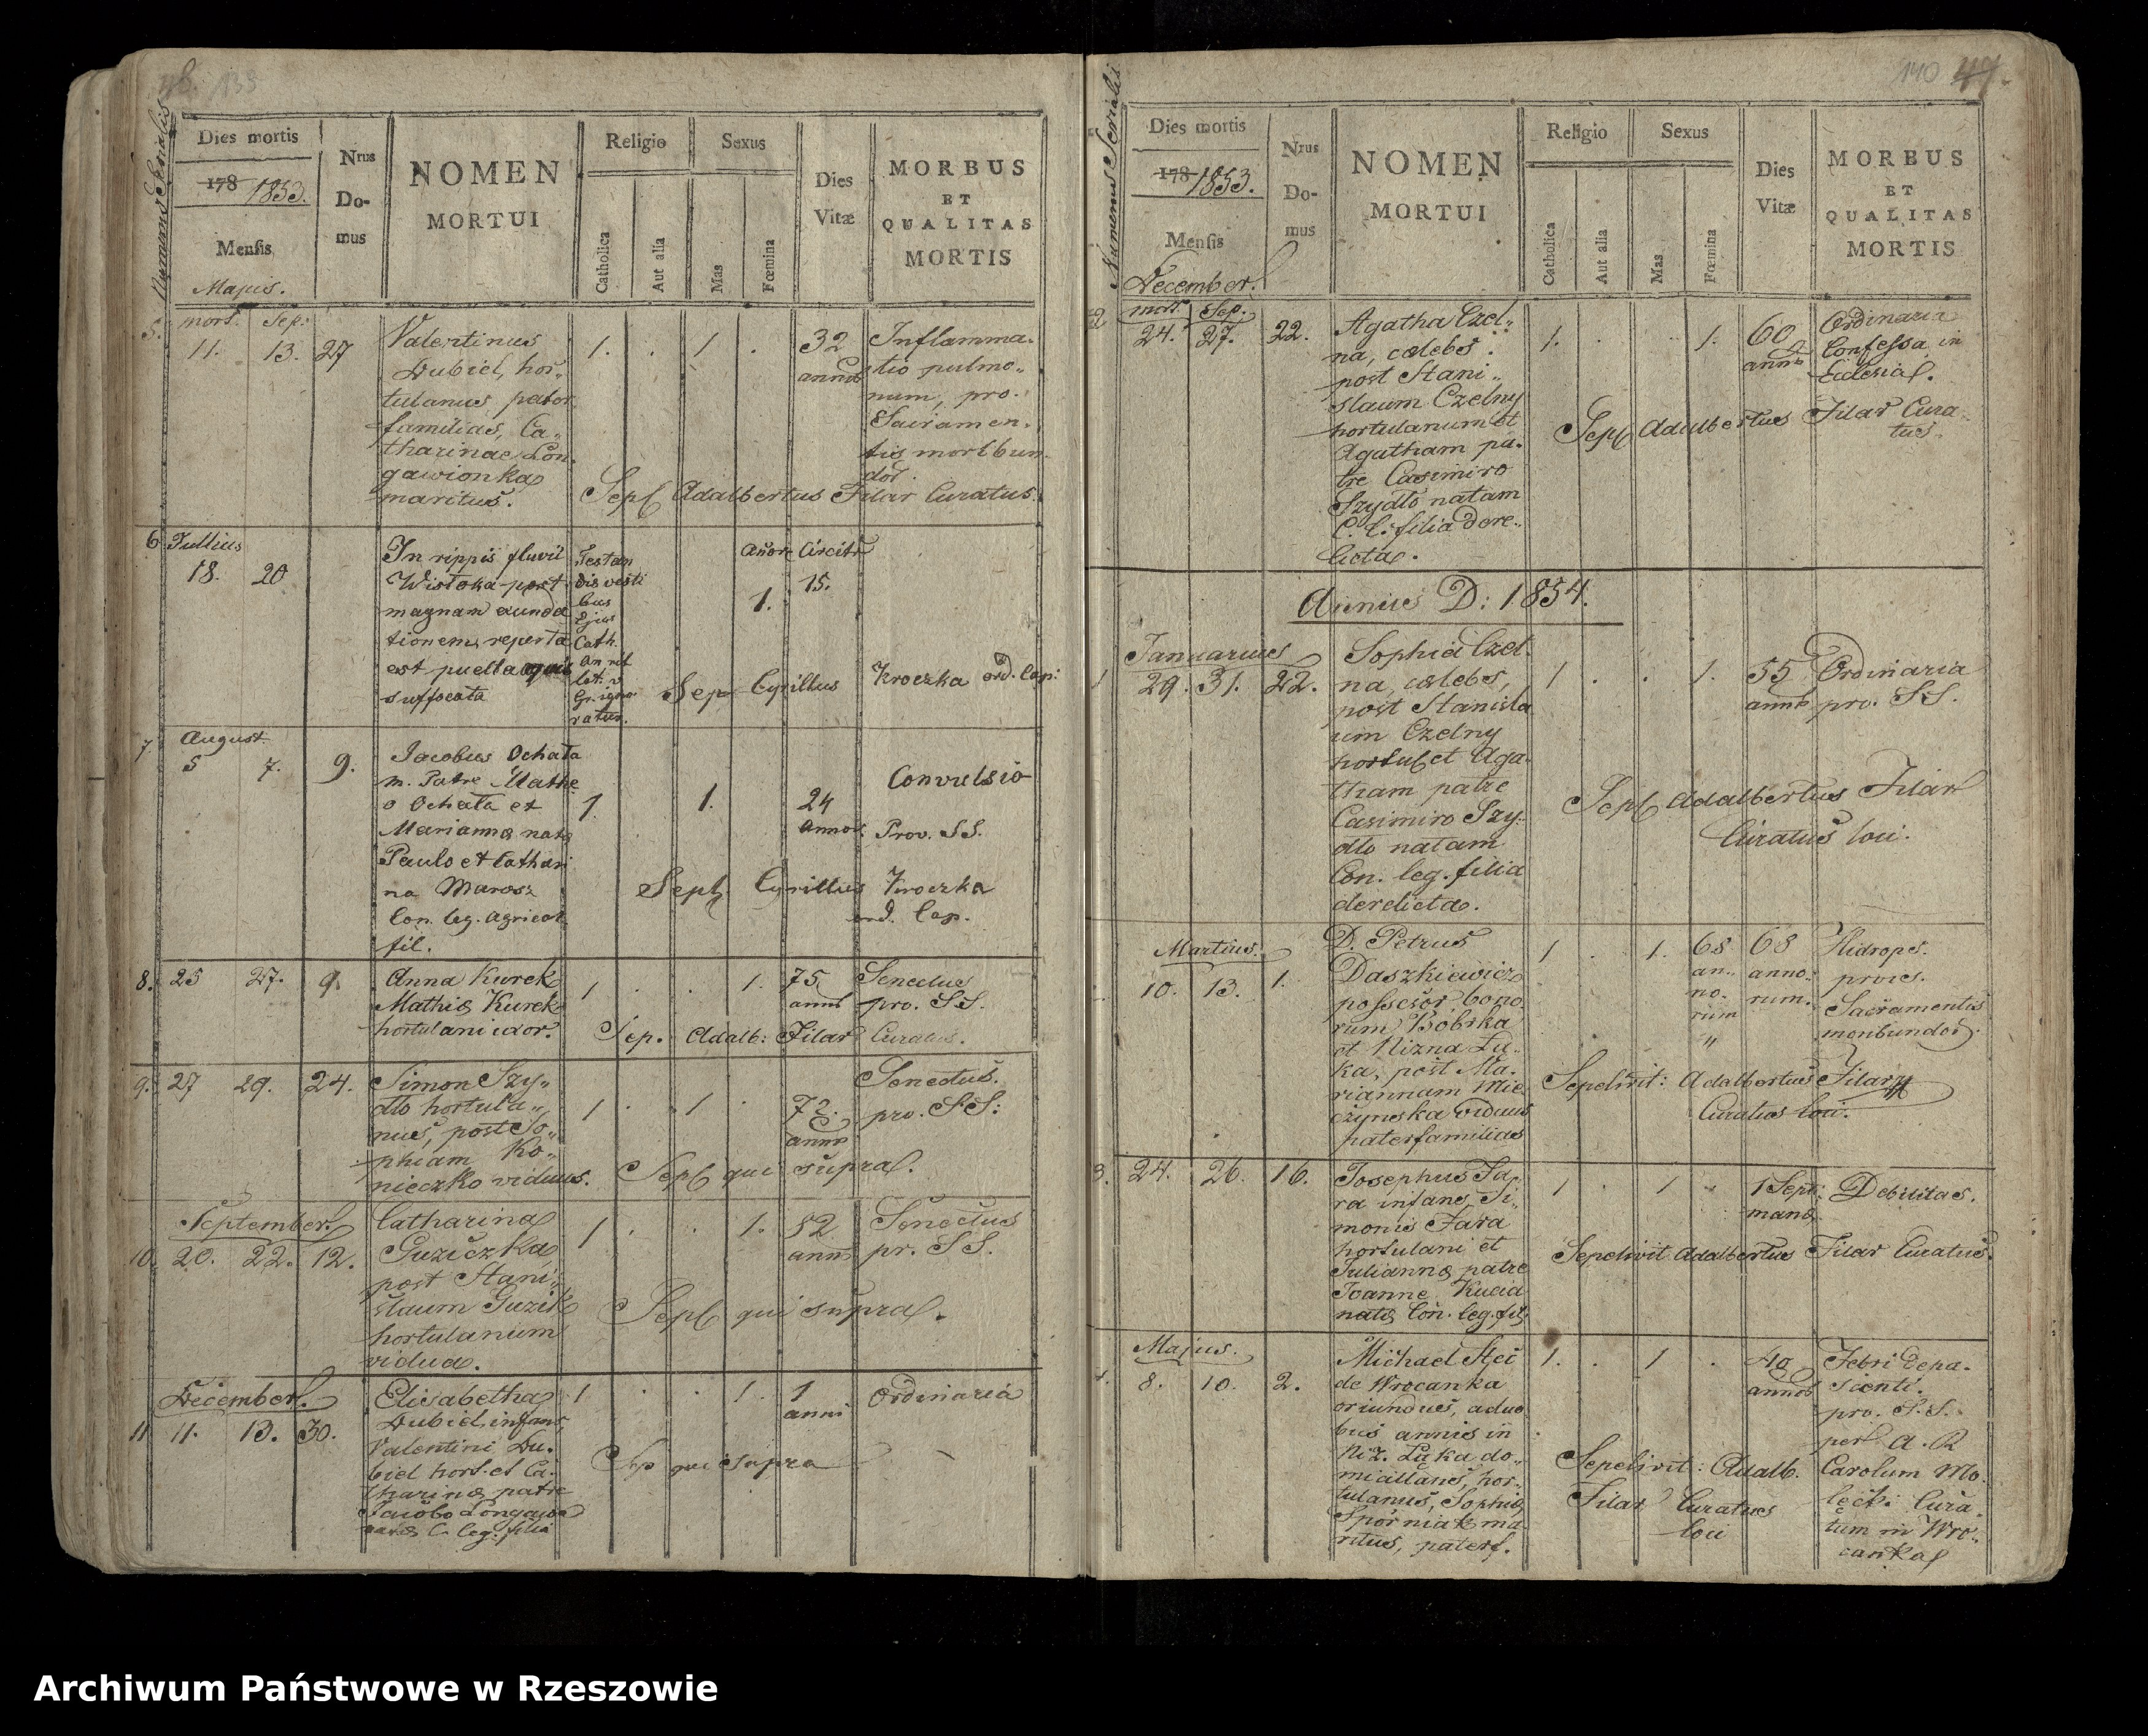 48. 139
Numerus Serialis
Dies mortis
178 1853.
Mensis
Majus.
Nrus
Do-
mus
NOMEN
MORTUI
Religio
Catholica
Aut alia
Sexus
Mas
Fœmina
Dies
Vitæ
MORBUS
ET
QUALITAS
MORTIS
mort. Sep:
5. 11. 13. 27
Valentinus
Dubiel, hor„
tulanus, pater
familias, Ca„
tharinae Lon„
gawionka
maritus.
1. . 1 .
32
annor
Inflamma„
tio pulmo„
num, pro.
Sacramen„
tis moribun„
dor.
Sepl Adalbertus Filar Curatus.
6 Jullius
18. 20
In rippis fluvii
Wistoka post
magnam inunda
tionem reperta
est puella aquis
suffocata
Testan
dis vesti
bus
Ejus
Cath.
an rit
lat. v
Gr. igno
ratur.
1.
Annor Circiter
15.
Sep Cyrillus Kroczka ord. Cap:
7. August.
5 7. 9.
Jacobus Ochała
m. Patre Mathe
o Ochała et
Marianna nata
Paulo et Cathari
na Marosz
Con. leg. Agricol.
fil.
1. 1.
24
Annor.
Convulsio
Prov. SS.
Sepl. Cyrillus Kroczka
ord. Cap.
8. 25 27. 9.
Anna Kurek
Mathiæ Kurek
hortulani uxor.
1 . . 1.
75
annor
Senectus
pro. SS.
Sep. Adalb: Filar Curatus.
9. 27 29. 24.
Simon Szy„
dło hortula„
nus, post So„
phiam Ko„
nieczko viduus.
1 . 1 .
72.
annor
Senectus.
pro. SS:
Sepl qui supra.
September.
10. 20. 22. 12.
Catharina
Guziczka
post Stani„
slaum Guzik
hortulanum
vidua.
1 . . 1.
82
annor
Senectus
pr. SS.
Sepl qui supra.
December.
11 11. 13. 30.
Elisabetha
Dubiel, infans,
Valentini Du„
biel hort. et Ca„
tharinæ patre
Jacobo Longawa
natæ C. leg: filia
1 . . 1.
1
anni
Ordinaria
Sep qui supra
140 49.
Numerus Serialis
Dies mortis
178 1853.
Mensis
December.
Nrus
Do-
mus
NOMEN
MORTUI
Religio
Catholica
Aut alia
Sexus
Mas
Fœmina
Dies
Vitæ
MORBUS
ET
QUALITAS
MORTIS
mort. Sep.
24. 27. 22.
Agatha Czel„
na, cælebs.
post Stani„
slaum Czelny
hortulanum et
Agatham pa„
tre Casimiro
Szydło natam
C. l: filia dere„
licta.
1. . . 1.
60
annor
Ordinaria
Confessa in
Ecclesia.
Sepl Adalbertus Filar Cura„
tus.
Annus D: 1854.
Januarius
1 29. 31. 22.
Sophia Czel„
na, cælebs,
post Stanisla
um Czelny
hortul et Aga„
tham patre
Casimiro Szy„
dło natam
Con. leg. filia
derelicta.
1 . . 1.
55
annor
Ordinaria
pro. SS.
Sepl Adalbertus Filar
Curatus loci.
Martius.
10. 13. 1.
D. Petrus
Daszkiewicz
possessor bono„
rum Bóbrka
et Nizna Łu„
ka, post Ma„
riannam Mie
czynska viduus
paterfamilias
1 . 1.
68
an„
no„
rum
„
68
anno„
rum.
Hidrops.
provis.
Sacramentis
moribundor.
Sepelivit: Adalbertus Filar
Curatus loci.
3. 24. 26. 16.
Josephus Fa„
ra infans, Si„
monis Fara
hortulani et
Juliannæ patre
Joanne Kucia
natæ Con. leg. fil.
1 . 1 .
1 Septi
manæ
Debilitas.
Sepelivit Adalbertus Filar Curatus.
Majus.
8. 10. 2.
Michael Stec
de Wrocanka
oriundus, aduo„
bus annis in
Niz. Łąka do„
micilians, hor„
tulanus, Sophiæ
Spórniak ma„
ritus, paterf.
1. . 1 .
40
annor
Febri depa„
scenti.
pro. S.S.
per A. R
Carolum Mo„
lęcki Cura„
tum in Wro„
canka
Sepelivit: Adalb.
Filar Curatus
loci
Archiwum Państwowe w Rzeszowie